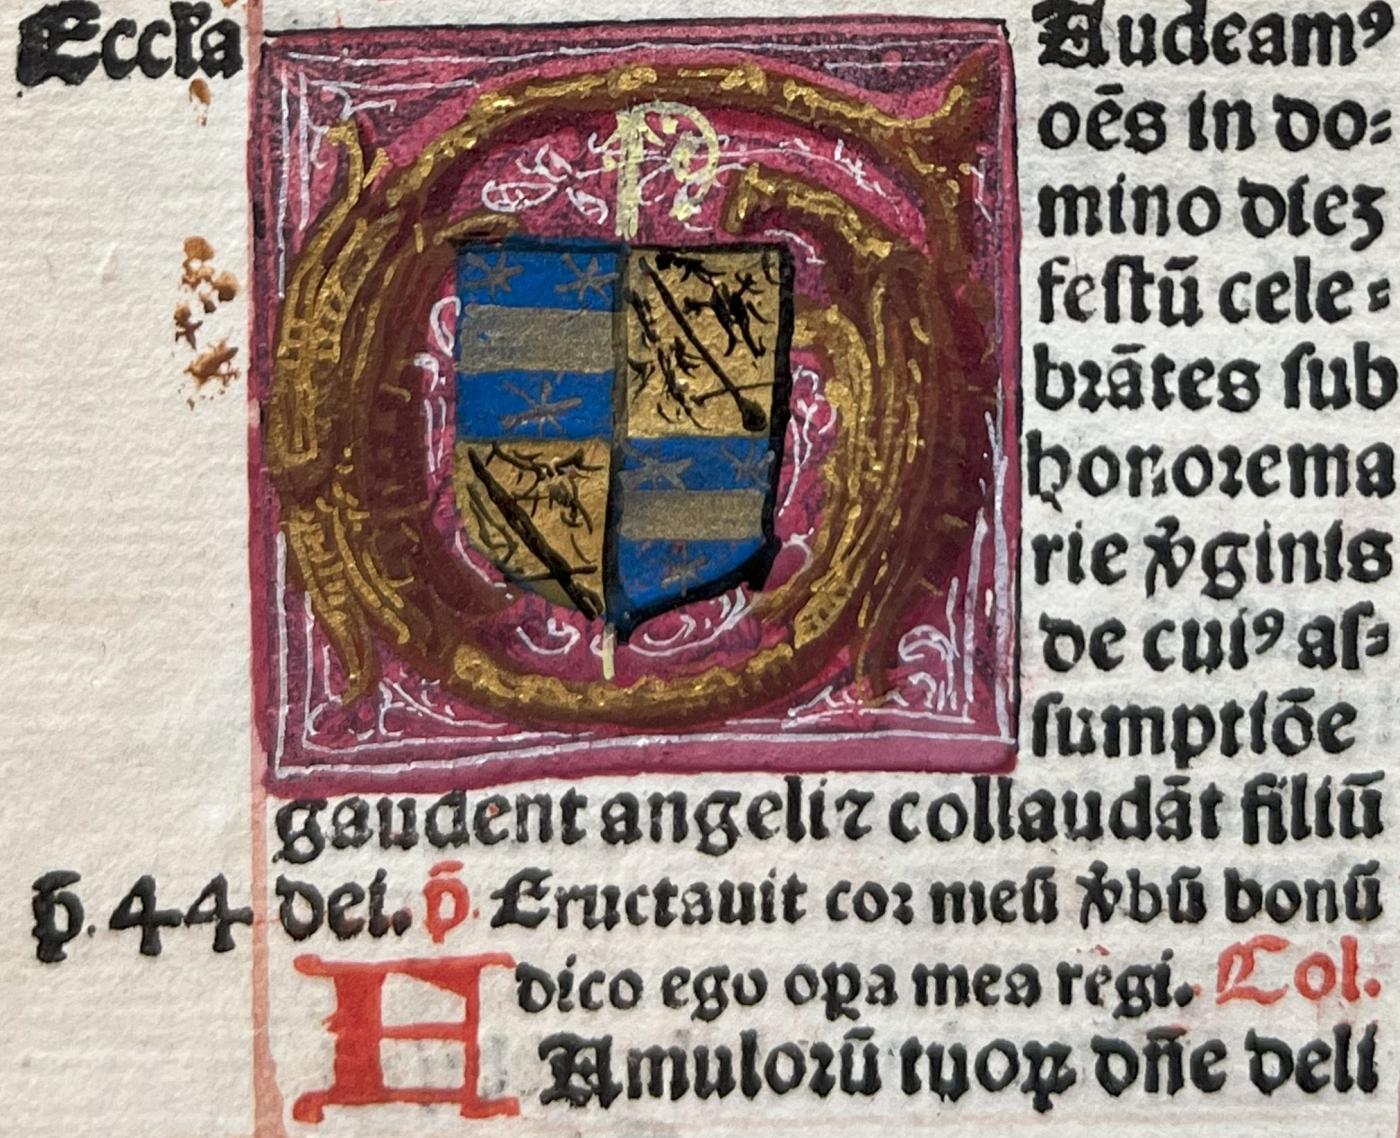 Eccľa
Gaudeamꝰ
oēs in do⸗
mino diez
festū cele⸗
brātes sub
honore ma
rie v̾ginis
de cuiꝰ as⸗
sumptiōe
gaudent angeli ⁊ collaudāt filiū
p̄. 44 dei. p̄. Eructauit cor meū v̾bū bonū
dico ego oꝑa mea regi. Col.
FAmulorū tuoꝝ dn̄e deli